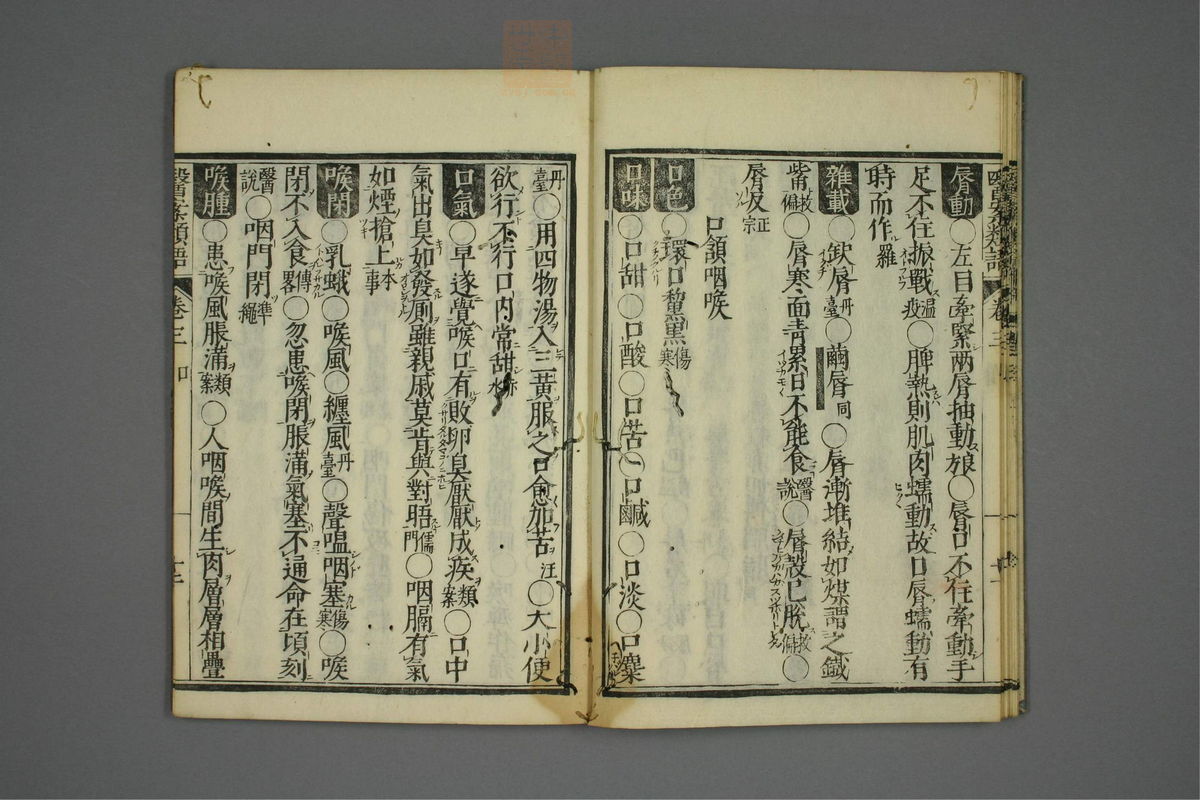 唇動 ○左目牽緊兩唇抽動㫰○唇口不住牽動手
足不住振戰温疫○脾熱則肌肉蠕動故口唇蠕動有
時而作羅
雜載 ○欽唇丹臺○繭唇同○唇漸堆結如煤謂之鐵
觜救偏○唇寒面青累日不能食醫説○唇殻已脱救偏○
唇反正宗
口頷咽喉
口色 ○環口黧黒傷寒
口味 ○口甜○口酸○口苦○口鹹○口淡○口麋
丹臺○用四物湯入三黄服之口愈加苦汪○大小便
欲行不行口内常甜赤水
口氣 ○早遂覺喉口有敗卵臭厭厭成疾類案○口中
氣出臭如發厠雖親戚莫肯與對晤儒門○咽膈有氣
如煙搶上本事
喉閉 ○乳蛾○喉風○纏風丹臺○聲嗢咽塞傷寒○喉
閉不入食傳畧○忽患喉閉脹滿氣塞不通命在頃刻
醫説○咽門閉準繩
喉腫 ○患喉風脹滿類案○人咽喉間生肉層層相疊
醫學類語 卷三